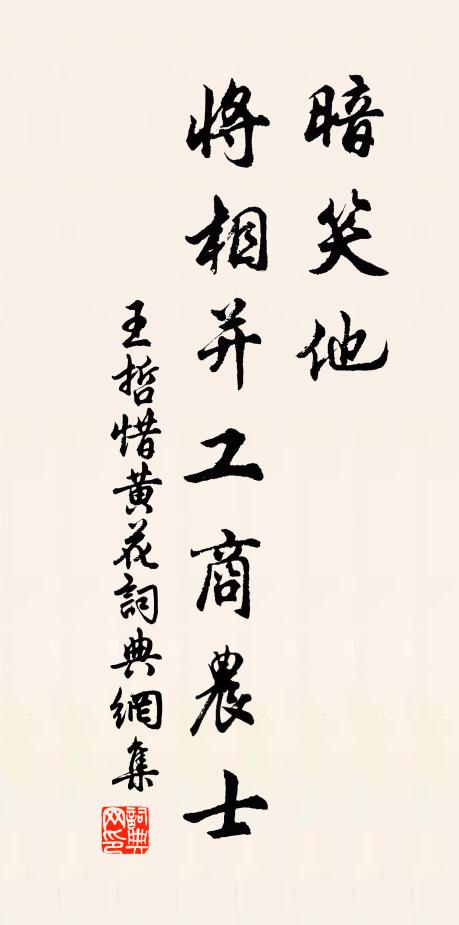 暗笑他
将相并工商農士
王哲惜黄花詞典網集
詞典網印